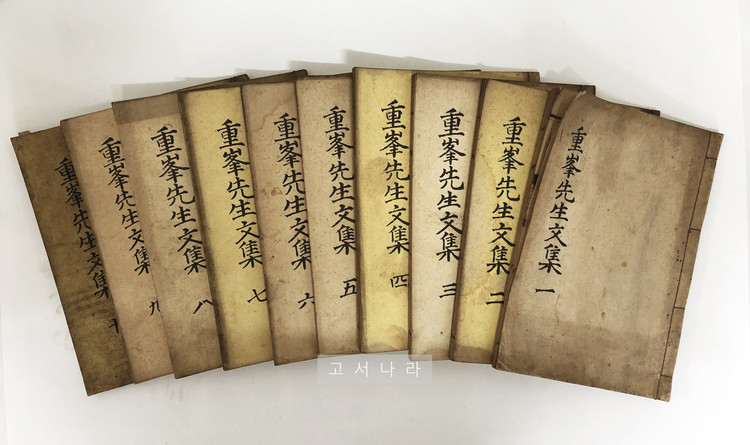 重峯先生文集 一
重峯先生文集 二
重峯先生文集 三
重峯先生文集 四
重峯先生文集 五
重峯先生文集 六
重峯先生文集 七
重峯先生文集 八
重峯先生文集 九
重峯先生文集 十
고서나라